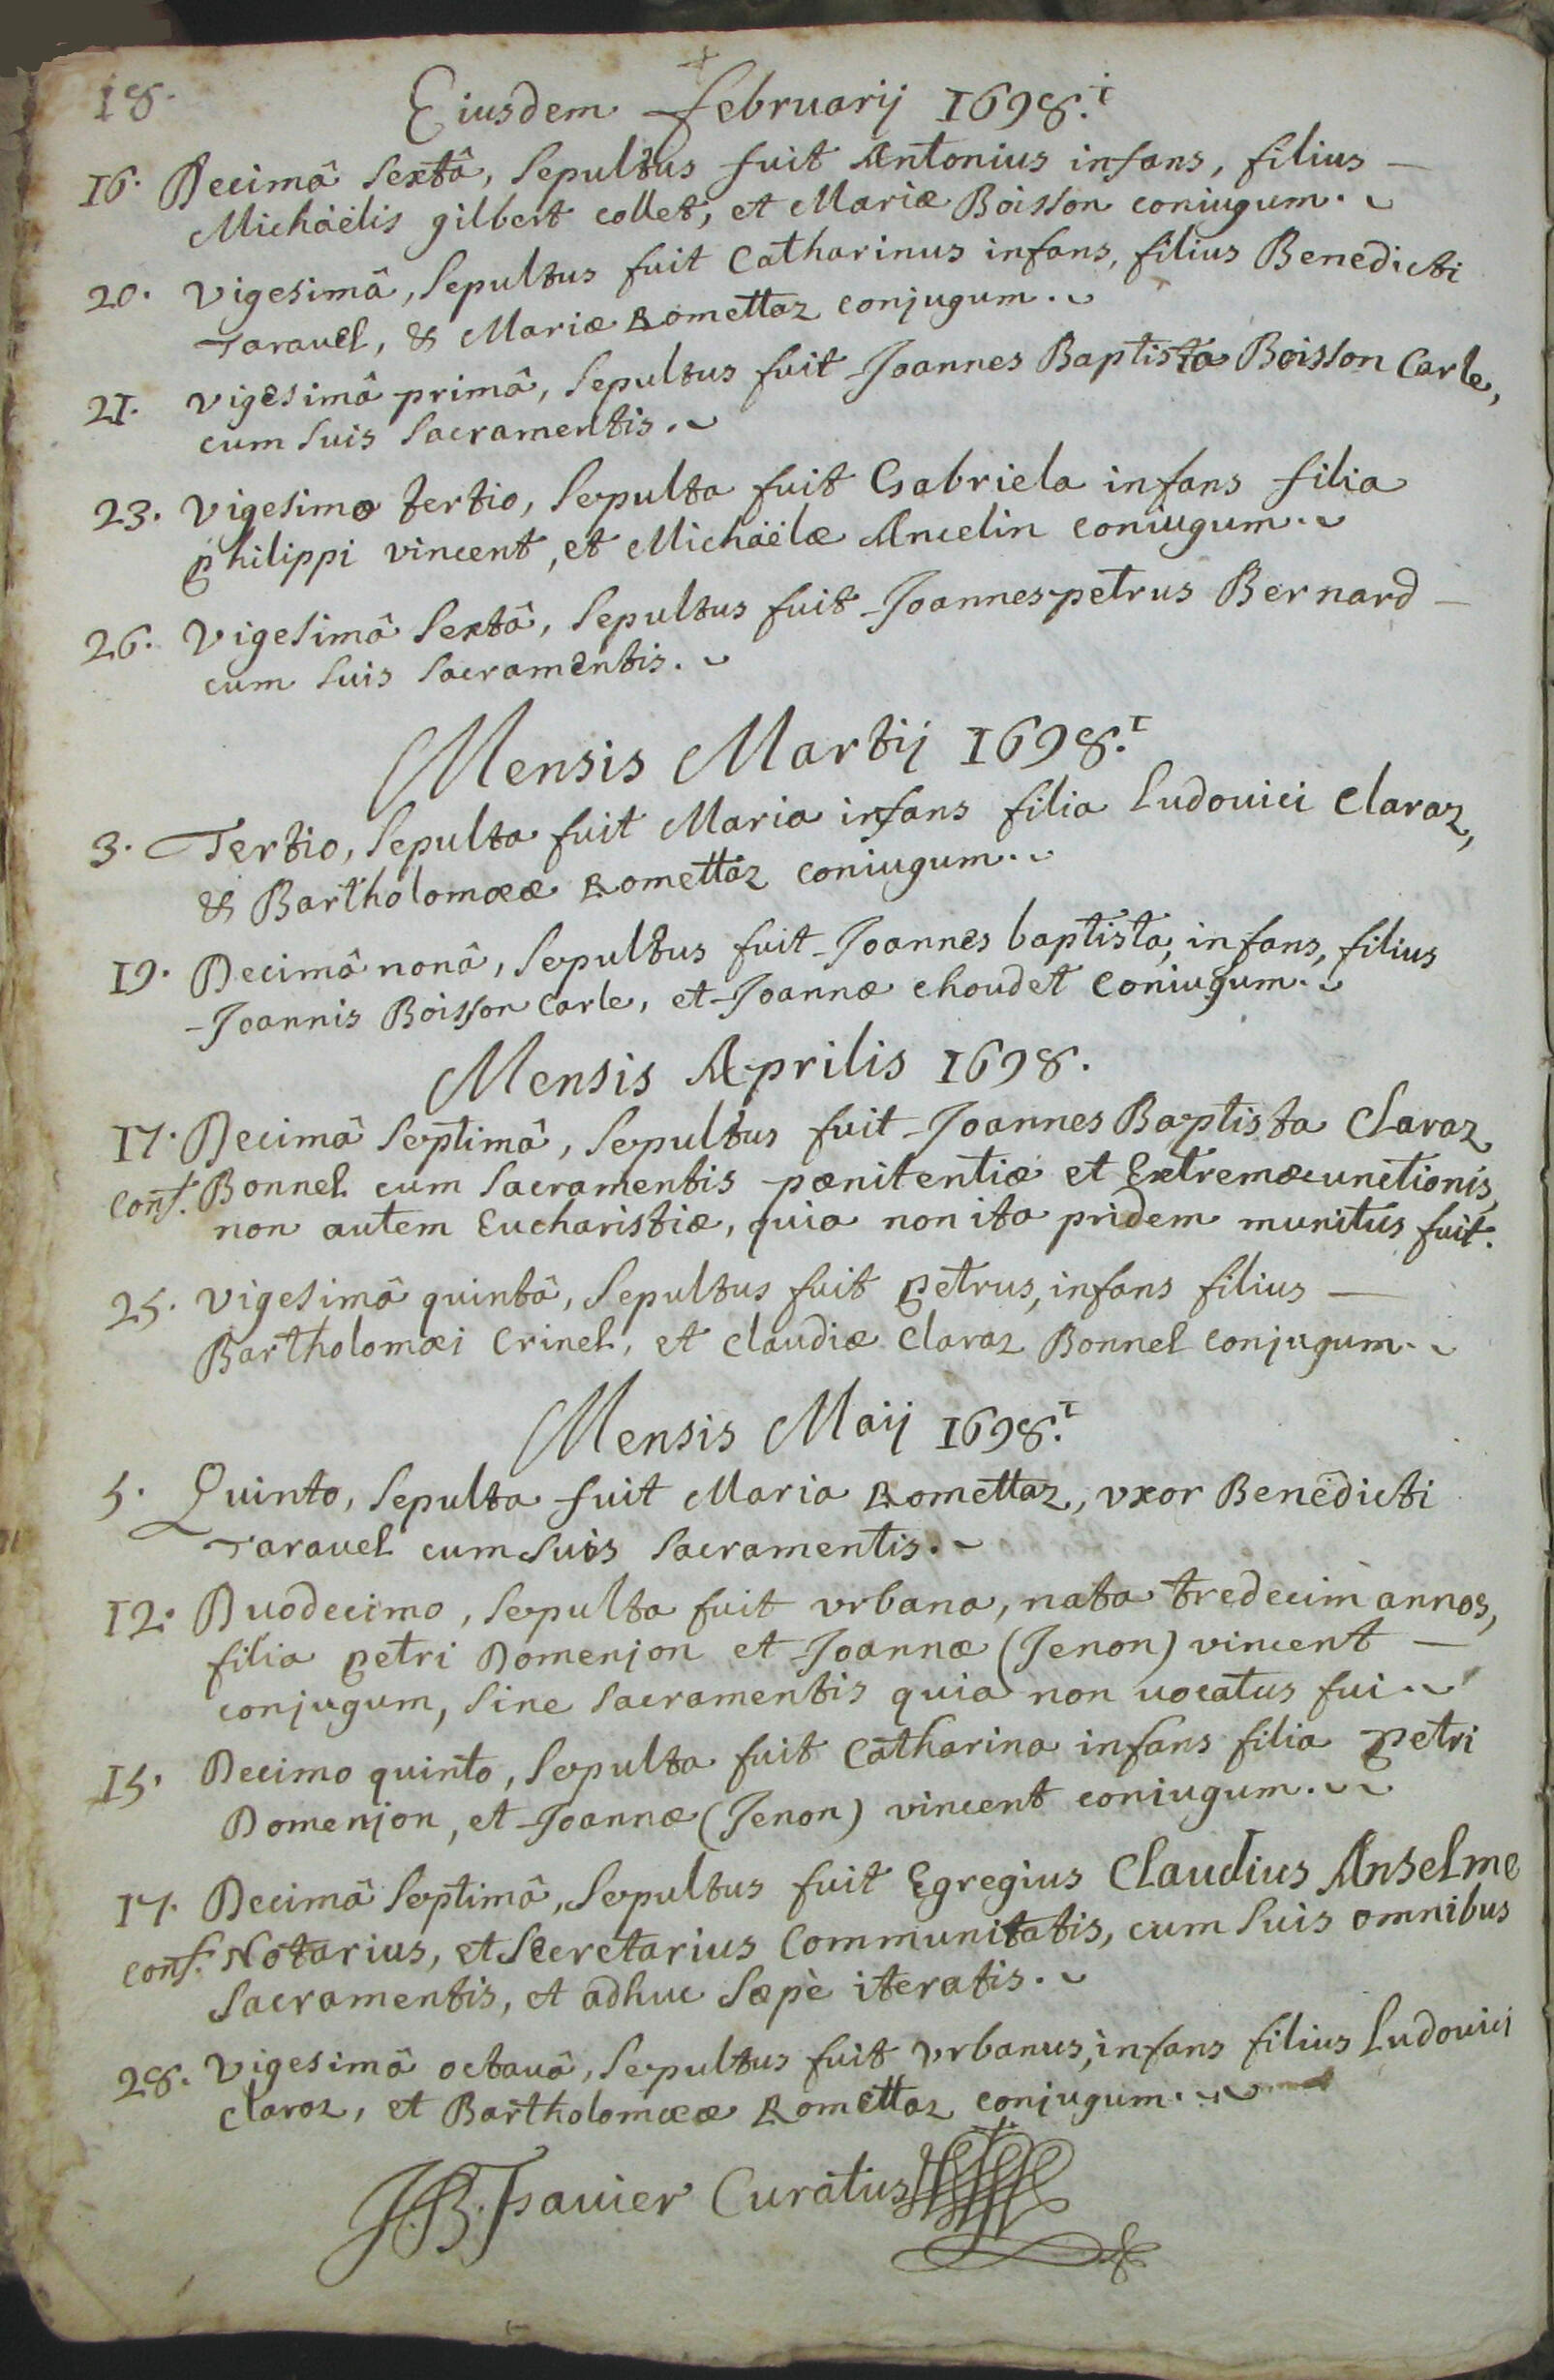 18.
Eiusdem februarij 1698.i
16. Decimâ sextâ, sepultus fuit Antonius infans, filius —
Michaëlis gilbert collet, et Mariæ Boisson coniugum.
20. vigesimâ, sepultus fuit Catharinus infans, filius Benedicti
Taravel, & Mariæ Romettaz conjugum.
21. vigesimâ primâ, sepultus fuit Joannes Baptista Boisson Carle,
cum suis sacramentis.
23. vigesimo tertio, sepulta fuit Gabriela infans filia
philippi vincent, et Michaëlæ Ancelin coniugum.
26. vigesimâ sextâ, sepultus fuit Joannespetrus Bernard —
cum suis sacramentis.
Mensis Martij 1698.i
3. Tertio, sepulta fuit Maria infans filia Ludouici claraz,
& Bartholomææ Romettaz coniugum.
19. Decimâ nonâ, sepultus fuit Joannes baptista, infans, filius
Joannis Boisson carle, et Joannæ choudet coniugum.
Mensis Aprilis 1698.
17. Decimâ septimâ, sepultus fuit Joannes Baptista Claraz
conf. Bonnel cum sacramentis pænitentiæ et Extremæunctionis,
non autem Eucharistiæ, quia non ita pridem munitus fuit.
25. vigesimâ quintâ, sepultus fuit petrus, infans filius —
Bartholomæi Crinel, et claudiæ claraz Bonnel conjugum.
Mensis Maij 1698.i
5. Quinto, sepulta fuit Maria Romettaz, vxor Benedicti
Tarauel cum suis sacramentis.
12. Duodecimo, sepulta fuit vrbana, nata tredecim annos,
filia petri Domenjon et Joannæ (Jenon) vincent —
conjugum, sine sacramentis quia non uocatus fui.
15. Decimo quinto, sepulta fuit Catharina infans filia petri
Domenjon, et Joannæ (Jenon) vincent coniugum.
17. Decimâ septimâ, sepultus fuit Egregius Claudius Anselme
conf. Notarius, et Secretarius Communitatis, cum suis omnibus
sacramentis, et adhuc sæpè iteratis.
28. vigesimâ octauâ, sepultus fuit vrbanus, infans filius Ludouici
claraz, et Bartholomææ Romettaz conjugum.
Curatus